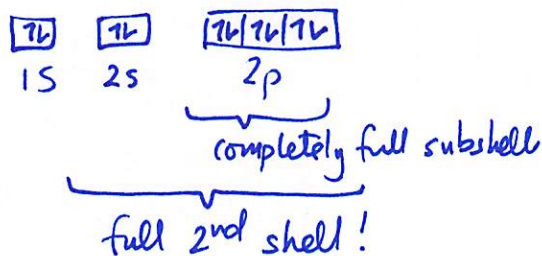 ⥮ ⥮ ⥮ ⥮ ⥮
1S 2s 2p
completely full subshell
full 2nd shell!